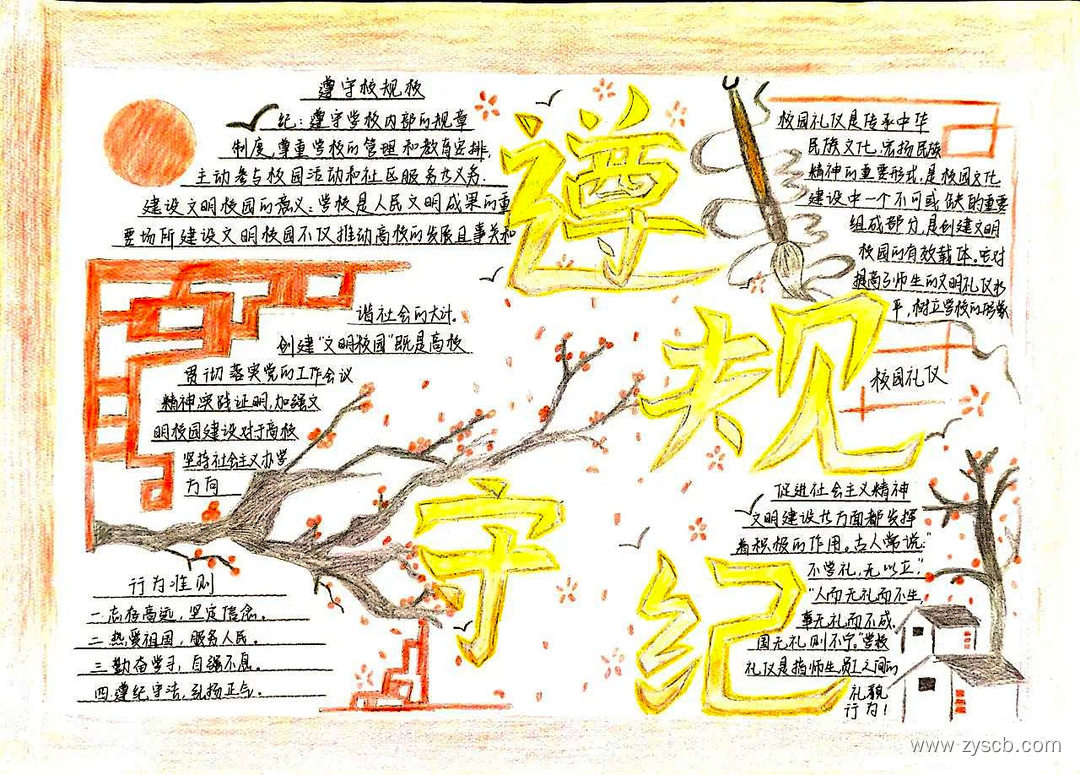 遵守校规校
纪:遵守学校内部的规章
制度,尊重学校的管理和教育安排,
主动参与校园活动和社区服务九义务.
建设文明校园的意义:学校是人民文明成果的重
要场所建设文明校园不仅推动高校的发展且事关和
谐社会的大计。
创建“文明校园”既是高校
贯彻落实党的工作会议
精神实践证明,加强文
明校园建设对于高校
坚持社会主义办学
方向
行为准则
一.志存高远,坚定信念。
二.热爱祖国,服务人民。
三.勤奋学习,自强不息。
四.遵纪守法,弘扬正气。
遵
守
规
纪
校园礼仪是传承中华
民族文化.宏扬民族
精神的重要形式,是校园文化
建设中一个不可或缺的重要
组成部分,是创建文明
校园的有效载体。它对
提高了师生的文明礼仪水
平,树立学校的形象
校园礼仪
促进社会主义精神
文明建设北方面都发挥
着积极的作用。古人常说:“
不学礼,无以立”,
“人而无礼而不生
事无礼而不成,
国无礼则不宁。”学校
礼仪是指师生员工之间的
礼貌
行为!
www.zyscb.com